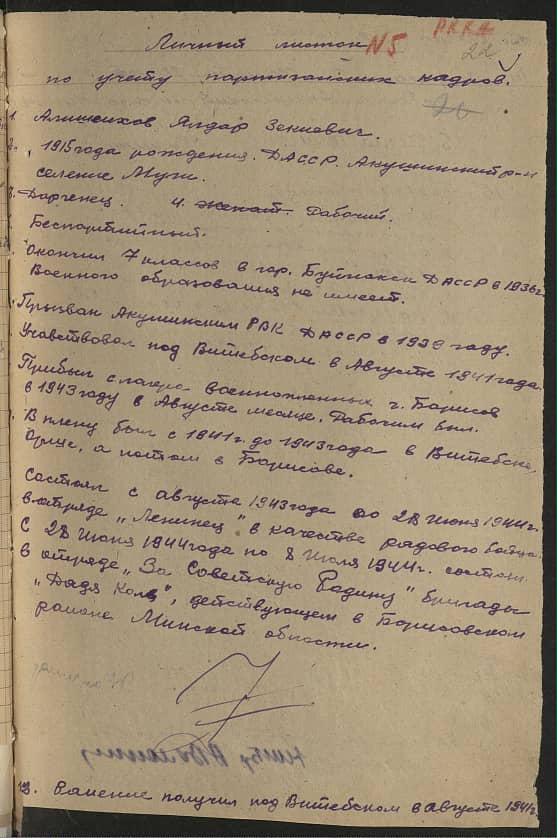 РККА
Личный листок N5
22
по учету партизанских кадров.
1. Алишихов Ялдар Зекиевич.
2. 1915 года рождения. ДАССР. Акушинский р-н
селение Муги.
3. Даргенец. 4. женат. Рабочий.
Беспартийный.
Окончил 7 классов в гор. Буйнакск ДАССР в 1936 г.
Военного образования не имеет.
Призван Акушинским РВК ДАССР в 1939 году.
Учавствовал под Витебском в Августе 1941 года.
Прибыл с лагеря военнопленных г. Борисов
в 1943 году в Августе месяце. Рабочим был.
В плену был с 1941 г. до 1943 года в Витебске,
Орше, а потом в Борисове.
Состоял с августа 1943 года до 28 июня 1944 г.
в отряде „Ленинец" в качестве рядового бойца.
С 28 июня 1944 года по 8 июля 1944 г. состоял
в отряде „За Советскую Родину" бригады
„Дядя Коля", действующем в Борисовском
районе Минской области.
13. Ранение получил под Витебском в августе 1941 г.